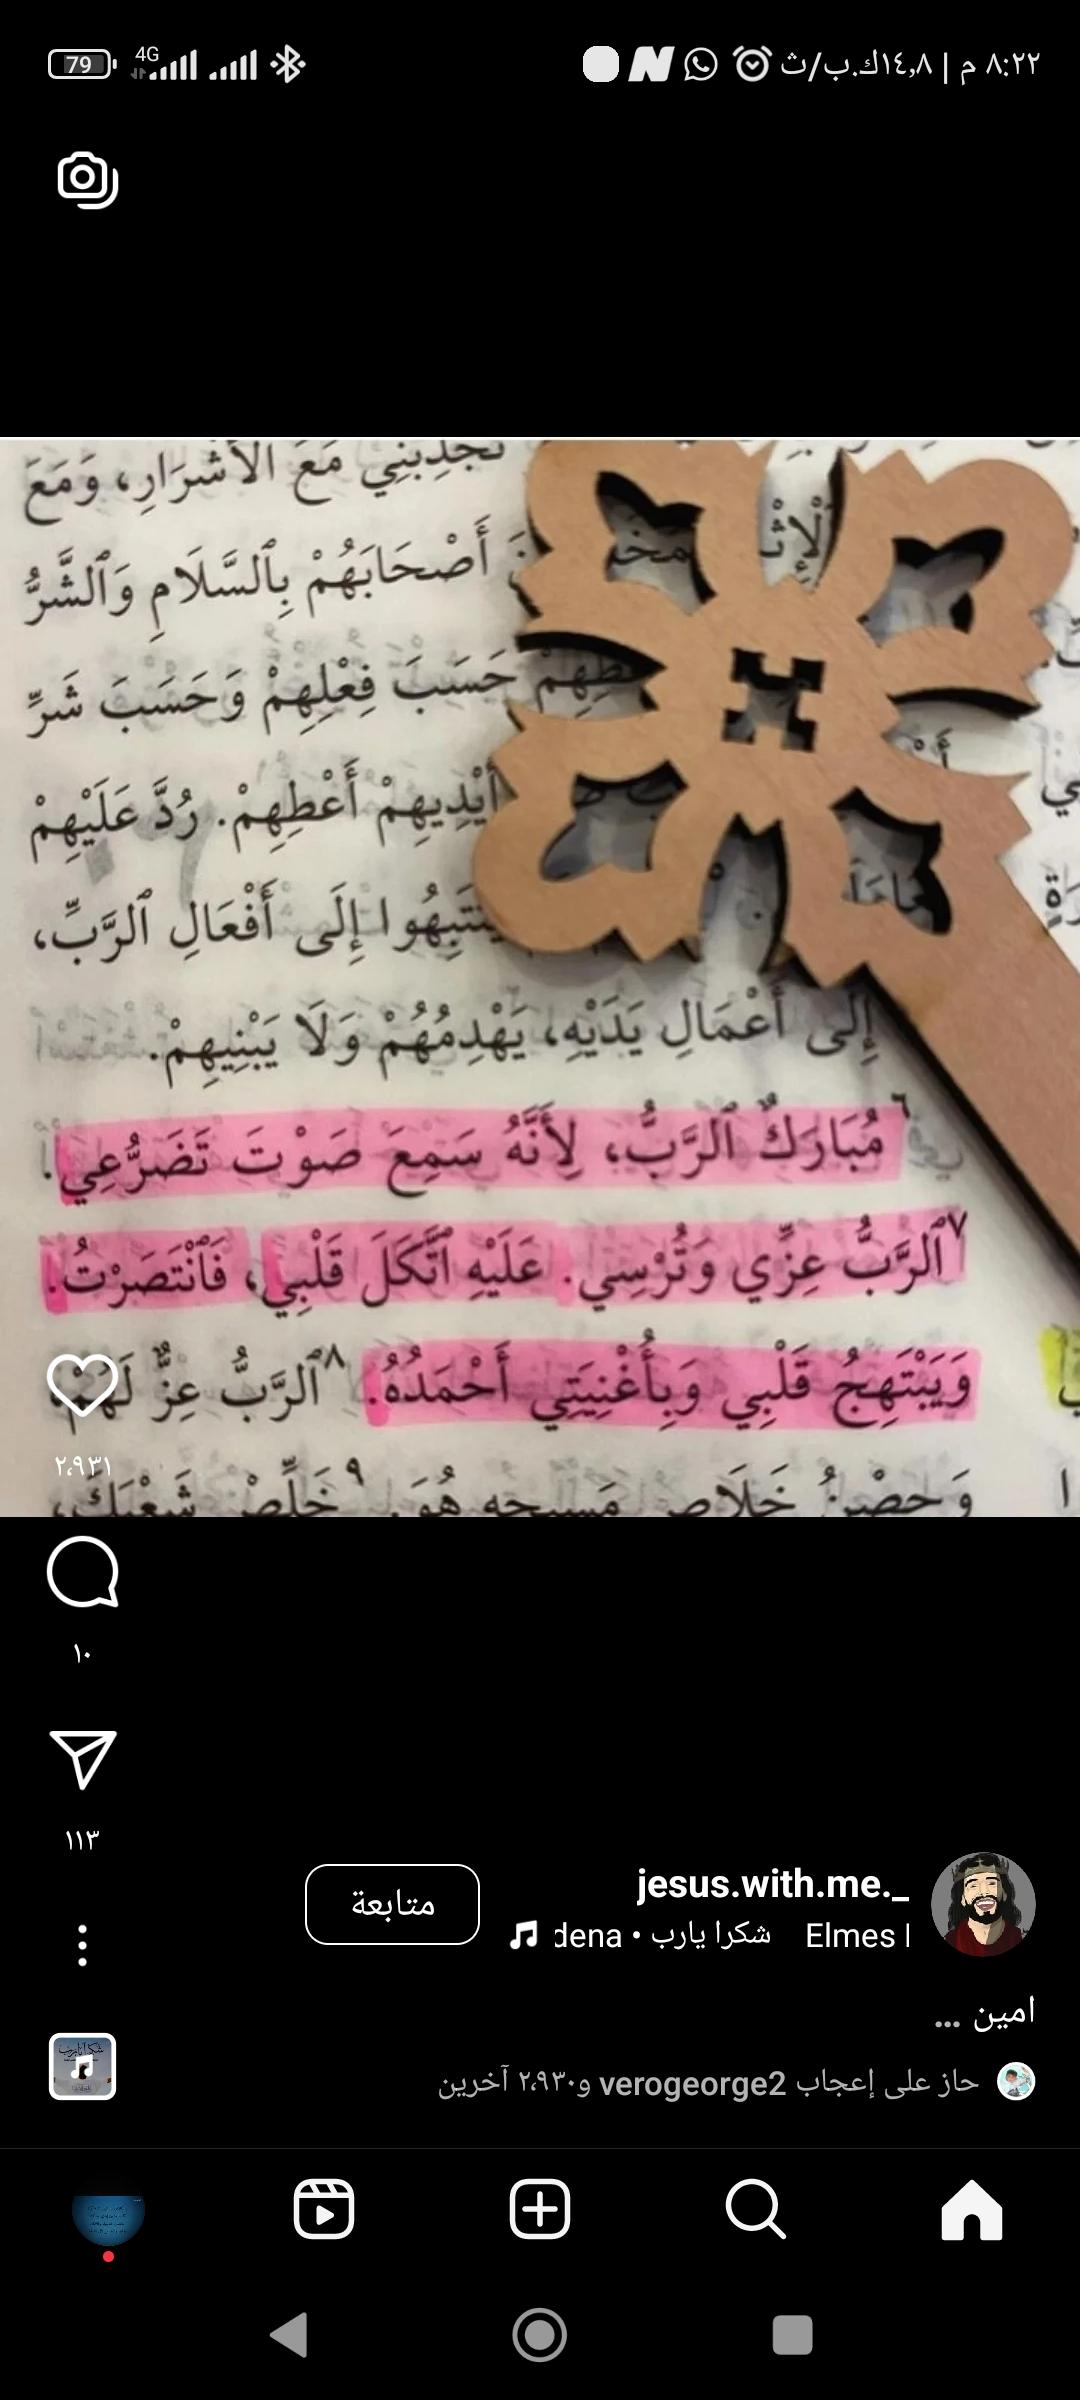 79 4G ٨:٢٢ م | ١٤,٨ك.ب/ث
تجذبني مَعَ الأَشْرَارِ، وَمَعَ
أَصْحَابَهُمْ بِٱلسَّلَامِ وَٱلشَّرُّ
حَسَبَ فِعْلِهِمْ وَحَسَبَ شَرِّ
أَيْدِيهِمْ أَعْطِهِمْ. رُدَّ عَلَيْهِمْ
إِلَى أَفْعَالِ ٱلرَّبِّ،
إِلَى أَعْمَالِ يَدَيْهِ، يَهْدِمُهُمْ وَلَا يَبْنِيهِمْ.
٦ مُبَارَكٌ ٱلرَّبُّ، لِأَنَّهُ سَمِعَ صَوْتَ تَضَرُّعِي.
٧ ٱلرَّبُّ عِزِّي وَتُرْسِي. عَلَيْهِ ٱتَّكَلَ قَلْبِي، فَٱنْتَصَرْتُ.
وَيَبْتَهِجُ قَلْبِي وَبِأُغْنِيَتِي أَحْمَدُهُ. ٨ ٱلرَّبُّ عِزٌّ لَهُمْ،
وَحِصْنُ خَلَاصِ مَسِيحِهِ هُوَ. ٩ خَلِّصْ شَعْبَكَ،
٢٬٩٣١
١٠
١١٣
jesus.with.me._
متابعة
dena • شكرا يارب Elmes
امين ...
حاز على إعجاب verogeorge2 و٢٬٩٣٠ آخرين